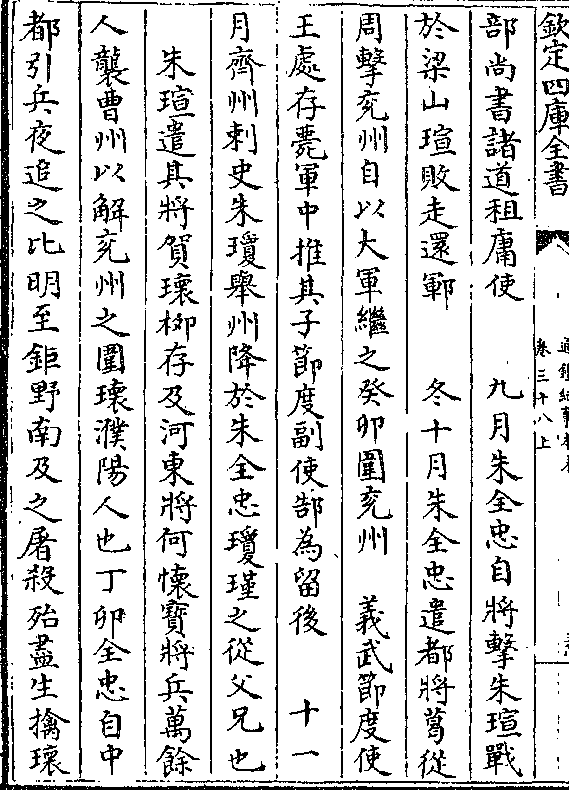 欽定四庫全書
通鑑紀事本末
卷三十八上
部尚書諸道租庸使　九月朱全忠自將擊朱瑄戰
於梁山瑄敗走還鄆　冬十月朱全忠遣都將葛從
周擊兖州自以大軍繼之癸卯圍兖州　義武節度使
王處存薨軍中推其子節度副使郜為留後　十一
月齊州刺史朱瓊舉州降於朱全忠瓊瑾之從父兄也
朱瑄遣其將賀瓌柳存及河東將何懷寶將兵萬餘
人襲曹州以解兖州之圍瓌濮陽人也丁卯全忠自中
都引兵夜追之比明至鉅野南及之屠殺殆盡生擒瓌